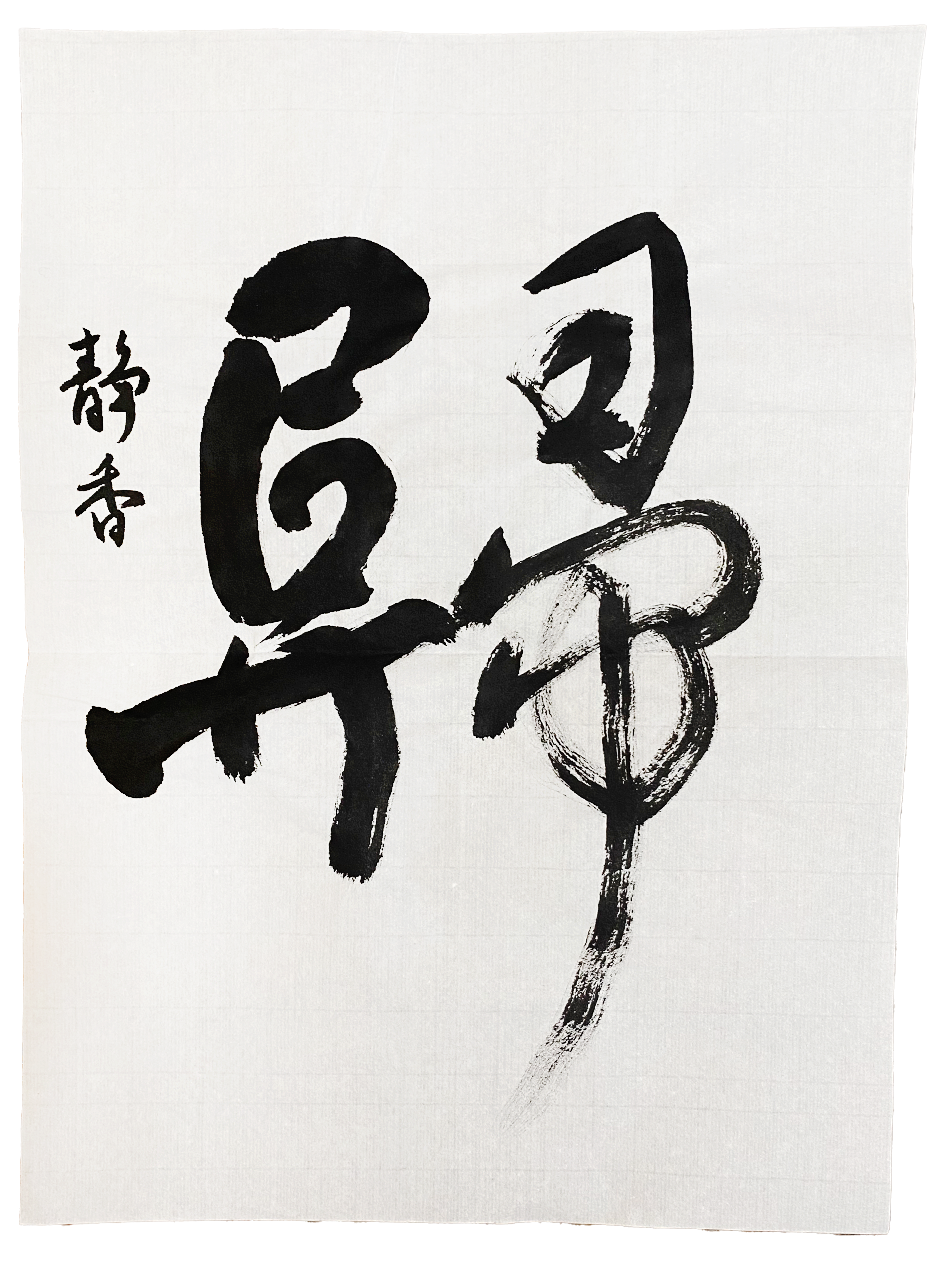 歸
静香